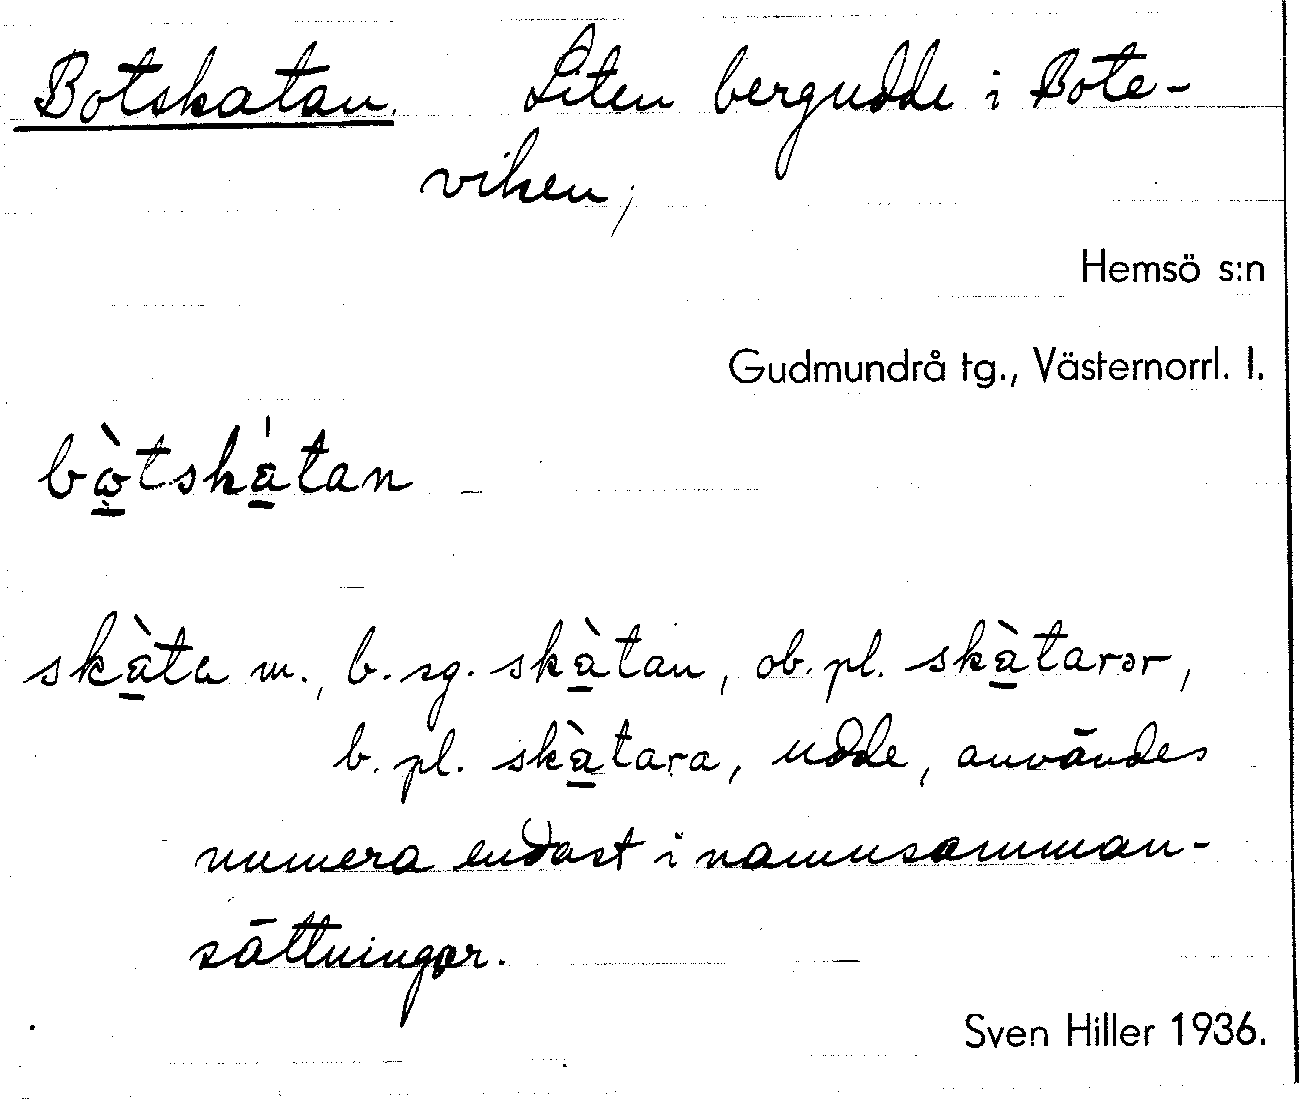 Botskatan. Liten bergudde i Bote-
viken,
Hemsö s:n
Gudmundrå tg., Västernorrl. l.
bò̱tská̱tan
skà̱ta m., b. sg. skà̱tan, ob. pl. skà̱tarər,
b. pl. skà̱tara, udde, användes
numera endast i namnsamman-
sättningar.
Sven Hiller 1936.